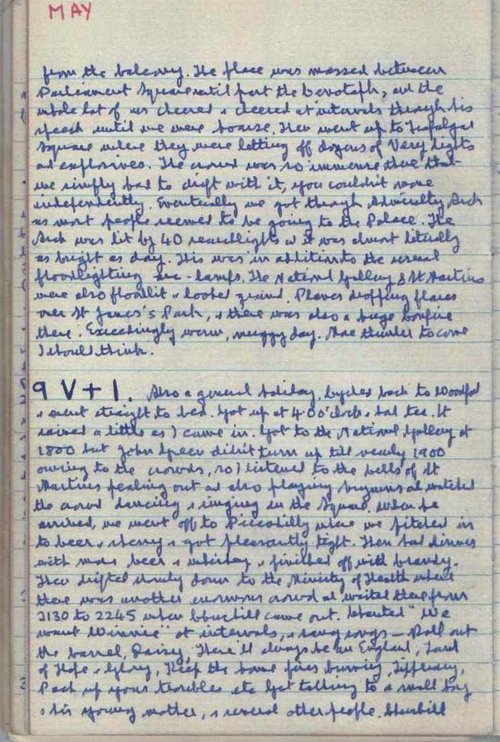 MAY
from the balcony. The place was massed between
Parliament Square until past the Cenotaph, and the
whole lot of us cheered & cheered at intervals through his
speech until we were hoarse. Then went up to Trafalgar
Square where they were letting off dozens of Very lights
and explosives. The crowd was so immense there that
we simply had to drift with it, you couldn't move
independently. Eventually we got through Admiralty Arch
as most people seemed to be going to the Palace. The
Arch was lit by 40 searchlights & it was almost literally
as bright as day. This was in addition to the several
floodlighting arc-lamps. The National Gallery & St Martins
were also floodlit & looked grand. Planes dropping flares
over St James's Park, & there was also a huge bonfire
there. Exceedingly warm, muggy day. More thunder to come
I should think.
9 V+1. Also a general holiday. Cycled back to Woodford
& went straight to bed. Got up at 4 o'clock & had tea. It
rained a little as I came in. Got to the National Gallery at
1800 but John Speer didn't turn up till nearly 1900
owing to the crowds, so I listened to the bells of St
Martins pealing out and also playing hymns and watched
the crowd dancing & singing in the Square. When he
arrived, we went off to Piccadilly where we pitched in
to beer & sherry & got pleasantly tight. Then had dinner
with more beer & whisky & finished off with brandy.
Then drifted down to the Ministry of Health where
there was another enormous crowd and waited there from
2130 to 2245 when Churchill came out. Chanted "We
want Winnie" at intervals, & sang songs — Roll out
the barrel, Daisy, There'll always be an England, Land
of Hope & Glory, Keep the home fires burning, Tipperary,
Pack up your troubles etc. Got talking to a small boy
& his young mother, & several other people. Churchill